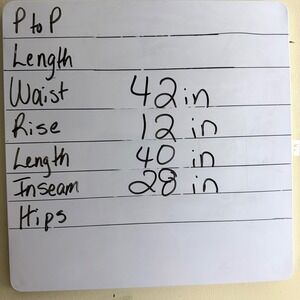 P to P
Length
Waist 42 in
Rise 12 in
Length 40 in
Inseam 28 in
Hips